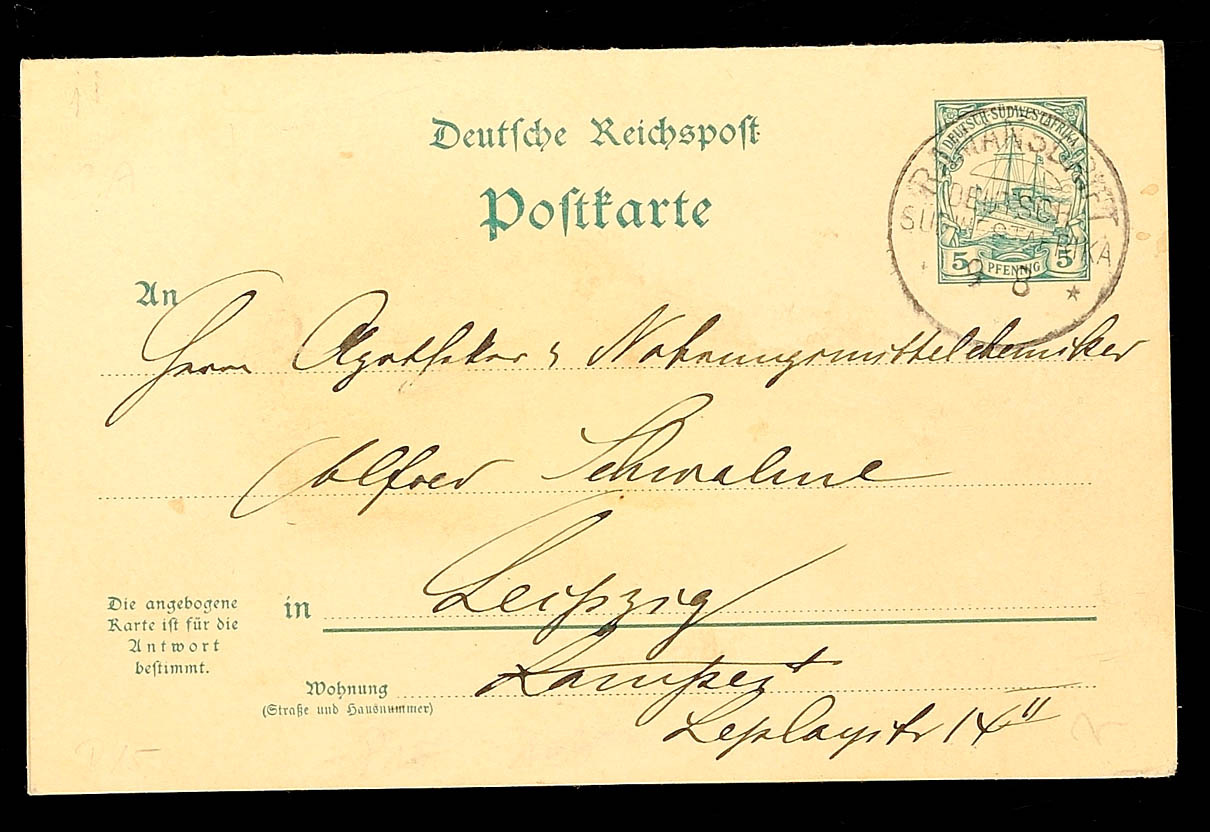 Deutsche Reichspost
Postkarte
DEUTSCH-SÜDWESTAFRIKA
5 PFENNIG 5
RAMANSDRIFT
DEUTSCH
SÜDWESTAFRIKA
9 8
An
Herrn Apotheker & Nahrungsmittelchemiker
Alfred Schwalme
in Leipzig
Die angebogene
Karte ist für die
Antwort
bestimmt.
Wohnung
(Straße und Hausnummer)